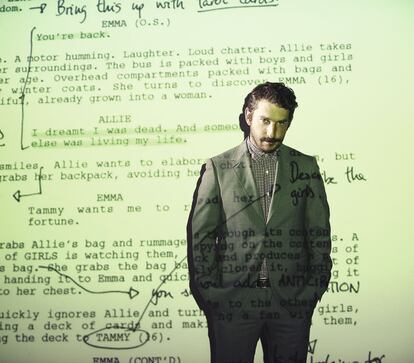 dom. → Bring this up with Tarot cards.
EMMA (O.S.)
You're back.
e. A motor humming. Laughter. Loud chatter. Allie takes
er surroundings. The bus is packed with boys and girls
er age. Overhead compartments packed with bags and
winter coats. She turns to discover EMMA (16),
iful, already grown into a woman.
ALLIE
I dreamt I was dead. And someo
else was living my life.
smiles, Allie wants to elabor but
grabs her backpack, avoiding he cha
Describe the girls.
EMMA
Tammy wants me to r
fortune.
grabs Allie's bag and rummage through its conten A
of GIRLS is watching them, spying on the conten
s bag. She grabs the bag back and produces
handing it to Emma and quick closed it, it
to her chest. you s add ANTICIPATION
to the other girls,
quickly ignores Allie and turn them,
ing a deck of cards and mak
the deck to TAMMY (16).
EMMA (CONT'D)
for